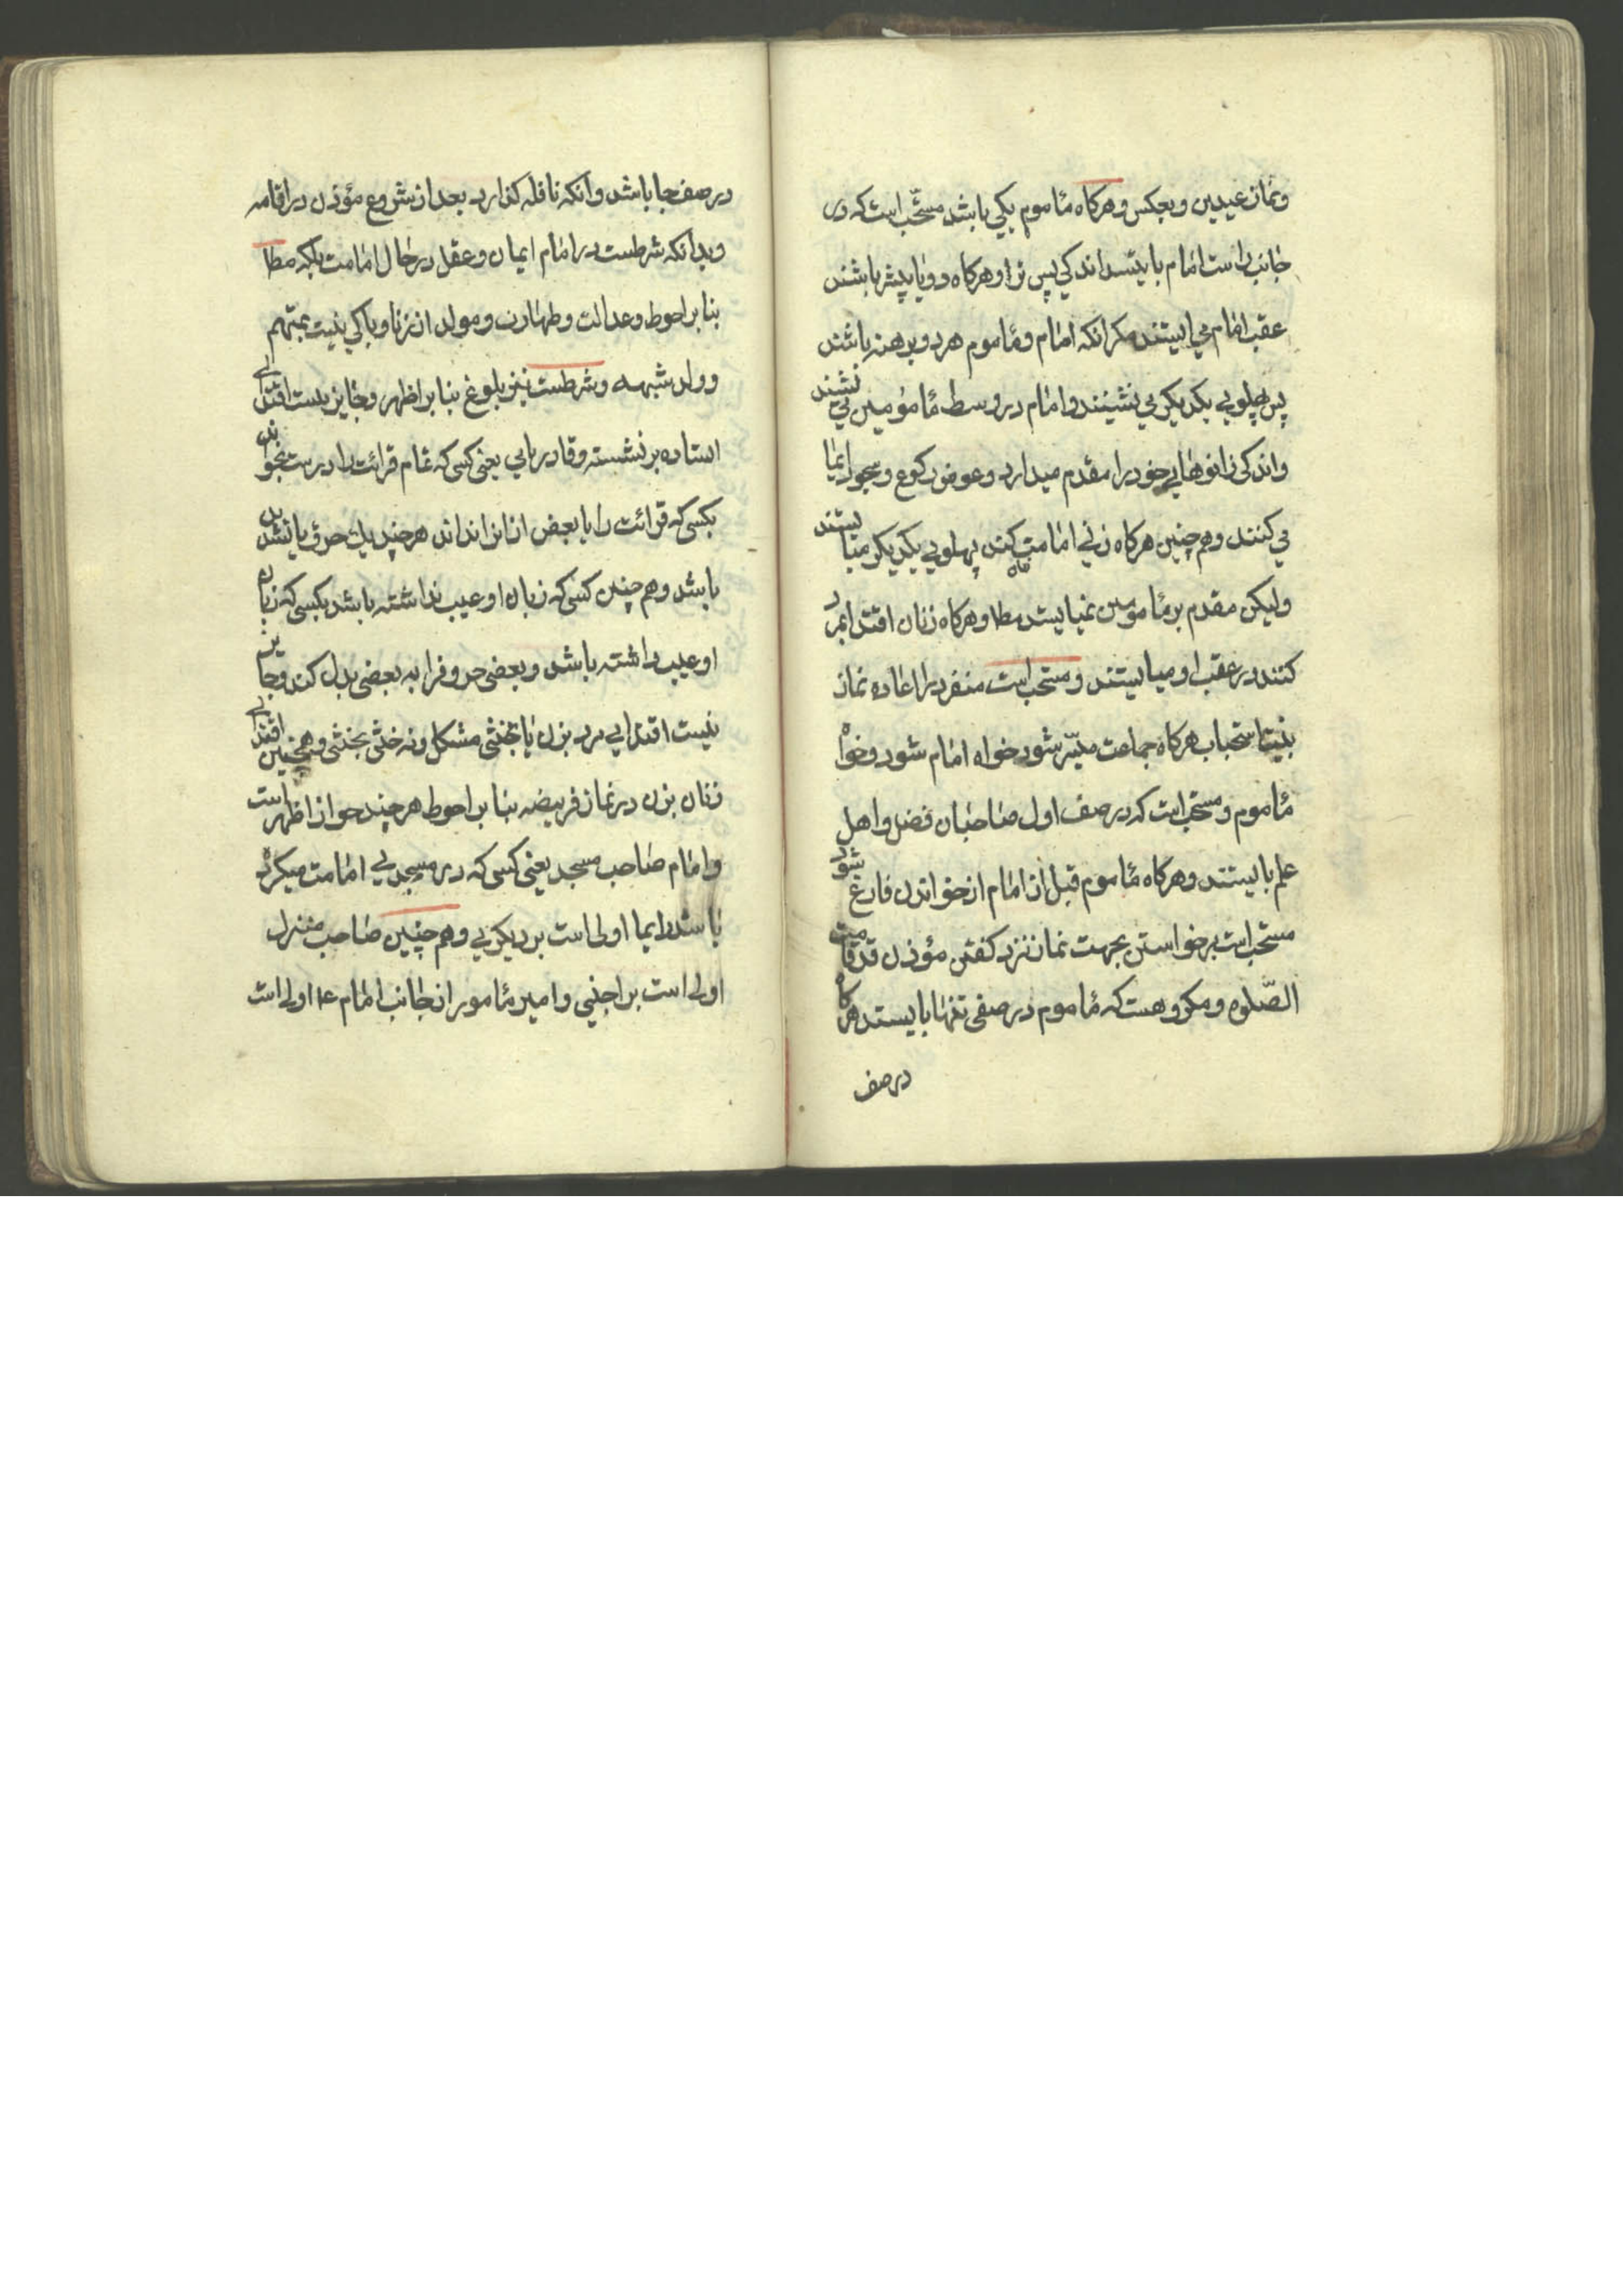 ونماز عیدین وبعکس وهرکاه مأموم یکی باشد مستحب است که در
جانب راست امام بایستد اندکی پس تر او وهرکاه دو یا بیشتر باشند
عقب امام می ایستند مکر انکه امام ومأموم هر دو برهنه باشند
پس پهلوی یکدیکر می نشینند وامام در وسط مأمومین می نشیند
واندکی زانوهای خود را مقدم میدارد وعوض رکوع وسجود ایما
می کنند وهم چنین هرکاه زنی امامت کند پهلویی یکدیکر میایستند
ولیکن مقدم بر مأمومین نمیایستد مطلا وهرکاه زنان اقتدا بمرد
کنند در عقب او میایستند ومستحب است منفرد را اعاده نماز
بنیت استحباب هرکاه جماعت میسّر شود خواه امام شود وخواه
مأموم ومستحب است که در صف اول صاحبان فضل واهل
علم بایستند وهرکاه مأموم قبل از امام از خواندن فارغ شود
مستحب است برخواستن بجهت نماز نزد کفتن مؤذن قد قامت
الصّلوه ومکروهست که مأموم در صفی تنها بایستد هرکاه
در صف
در صف جا باشد وانکه نافله کذارد بعد از شروع مؤذن در اقامه
وبدانکه شرطست در امام ایمان وعقل در حال امامت بلکه مطلا
بنابر احوط وعدالت وطهارت ومولد از زنا وباکی نیست بمتهم
وولد شبهه وشرطست نیز بلوغ بنابر اظهر وجایز نیست اقتدای
استاده بر نشسته وقادر بامی یعنی کسی که تمام قرائت را درست بخواند
بکسی که قرائت را یا بعض از انرا نداند هرچند یک حرف یا تشدید
باشد وهم چنین کسی که زبان او عیب نداشته باشد بکسی که زبان
او عیب داشته باشد وبعضی حروفرا به بعضی بدل کند وجایز
نیست اقتدایی مرد بزن یا بخنثی مشکل ونه خنثی بخنثی وهمچنین اقتدای
زنان بزن در نماز فریضه بنابر احوط هرچند جواز اظهر است
وامام صاحب مسجد یعنی کسی که در مسجدیی امامت میکرده
باشد دایما اولی است بر دیکریی وهم چنین صاحب منزل
اولی است بر اجنبی وامیر مأمور از جانب امام ع اولی است